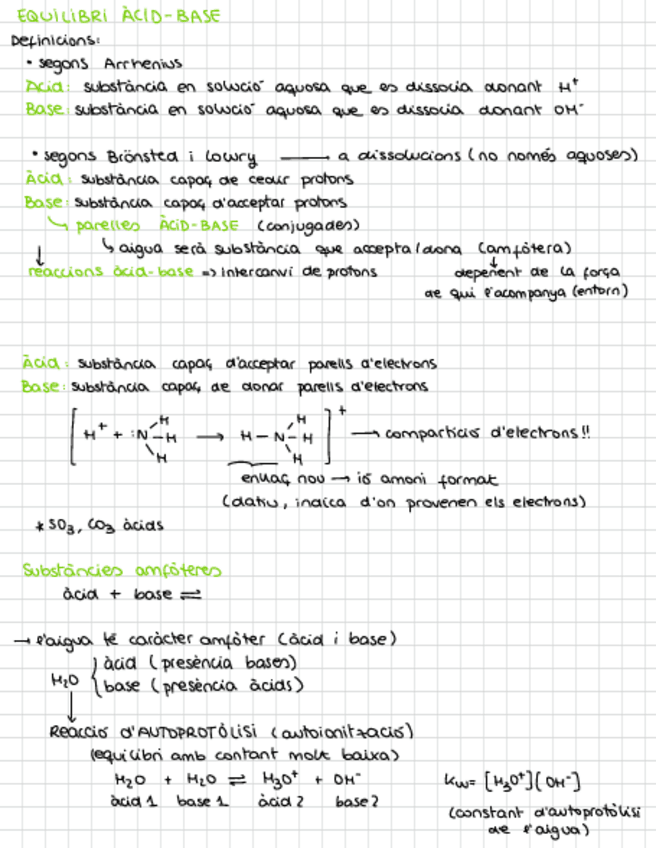 EQUILIBRI ÀCID-BASE
Definicions:
• segons Arrhenius
Àcid: substància en solució aquosa que es dissocia donant H⁺
Base: substància en solució aquosa que es dissocia donant OH⁻
• segons Brönsted i Lowry —— a dissolucions (no només aquoses)
Àcid: substància capaç de cedir protons
Base: substància capaç d'acceptar protons
↳ parelles ÀCID-BASE (conjugades)
↳ aigua serà substància que accepta/dona (amfòtera)
reaccions àcid-base => intercanvi de protons
depenent de la força
de qui l'acompanya (entorn)
Àcid: substància capaç d'acceptar parells d'electrons
Base: substància capaç de donar parells d'electrons
[H⁺ + :N-H H H → H-N-H H H]⁺ → compartició d'electrons!!
enllaç nou → ió amoni format
(datiu, indica d'on provenen els electrons)
* SO₃, CO₃ àcids
Substàncies amfòteres
àcid + base ⇌
→ l'aigua té caràcter amfòter (àcid i base)
H₂O { àcid (presència bases)
base (presència àcids)
Reacció d'AUTOPROTÒLISI (autoionització)
(equilibri amb contant molt baixa)
H₂O + H₂O ⇌ H₃O⁺ + OH⁻ Kw= [H₃O⁺][OH⁻]
àcid 1 base 1 àcid 2 base 2
(constant d'autoprotòlisi
de l'aigua)